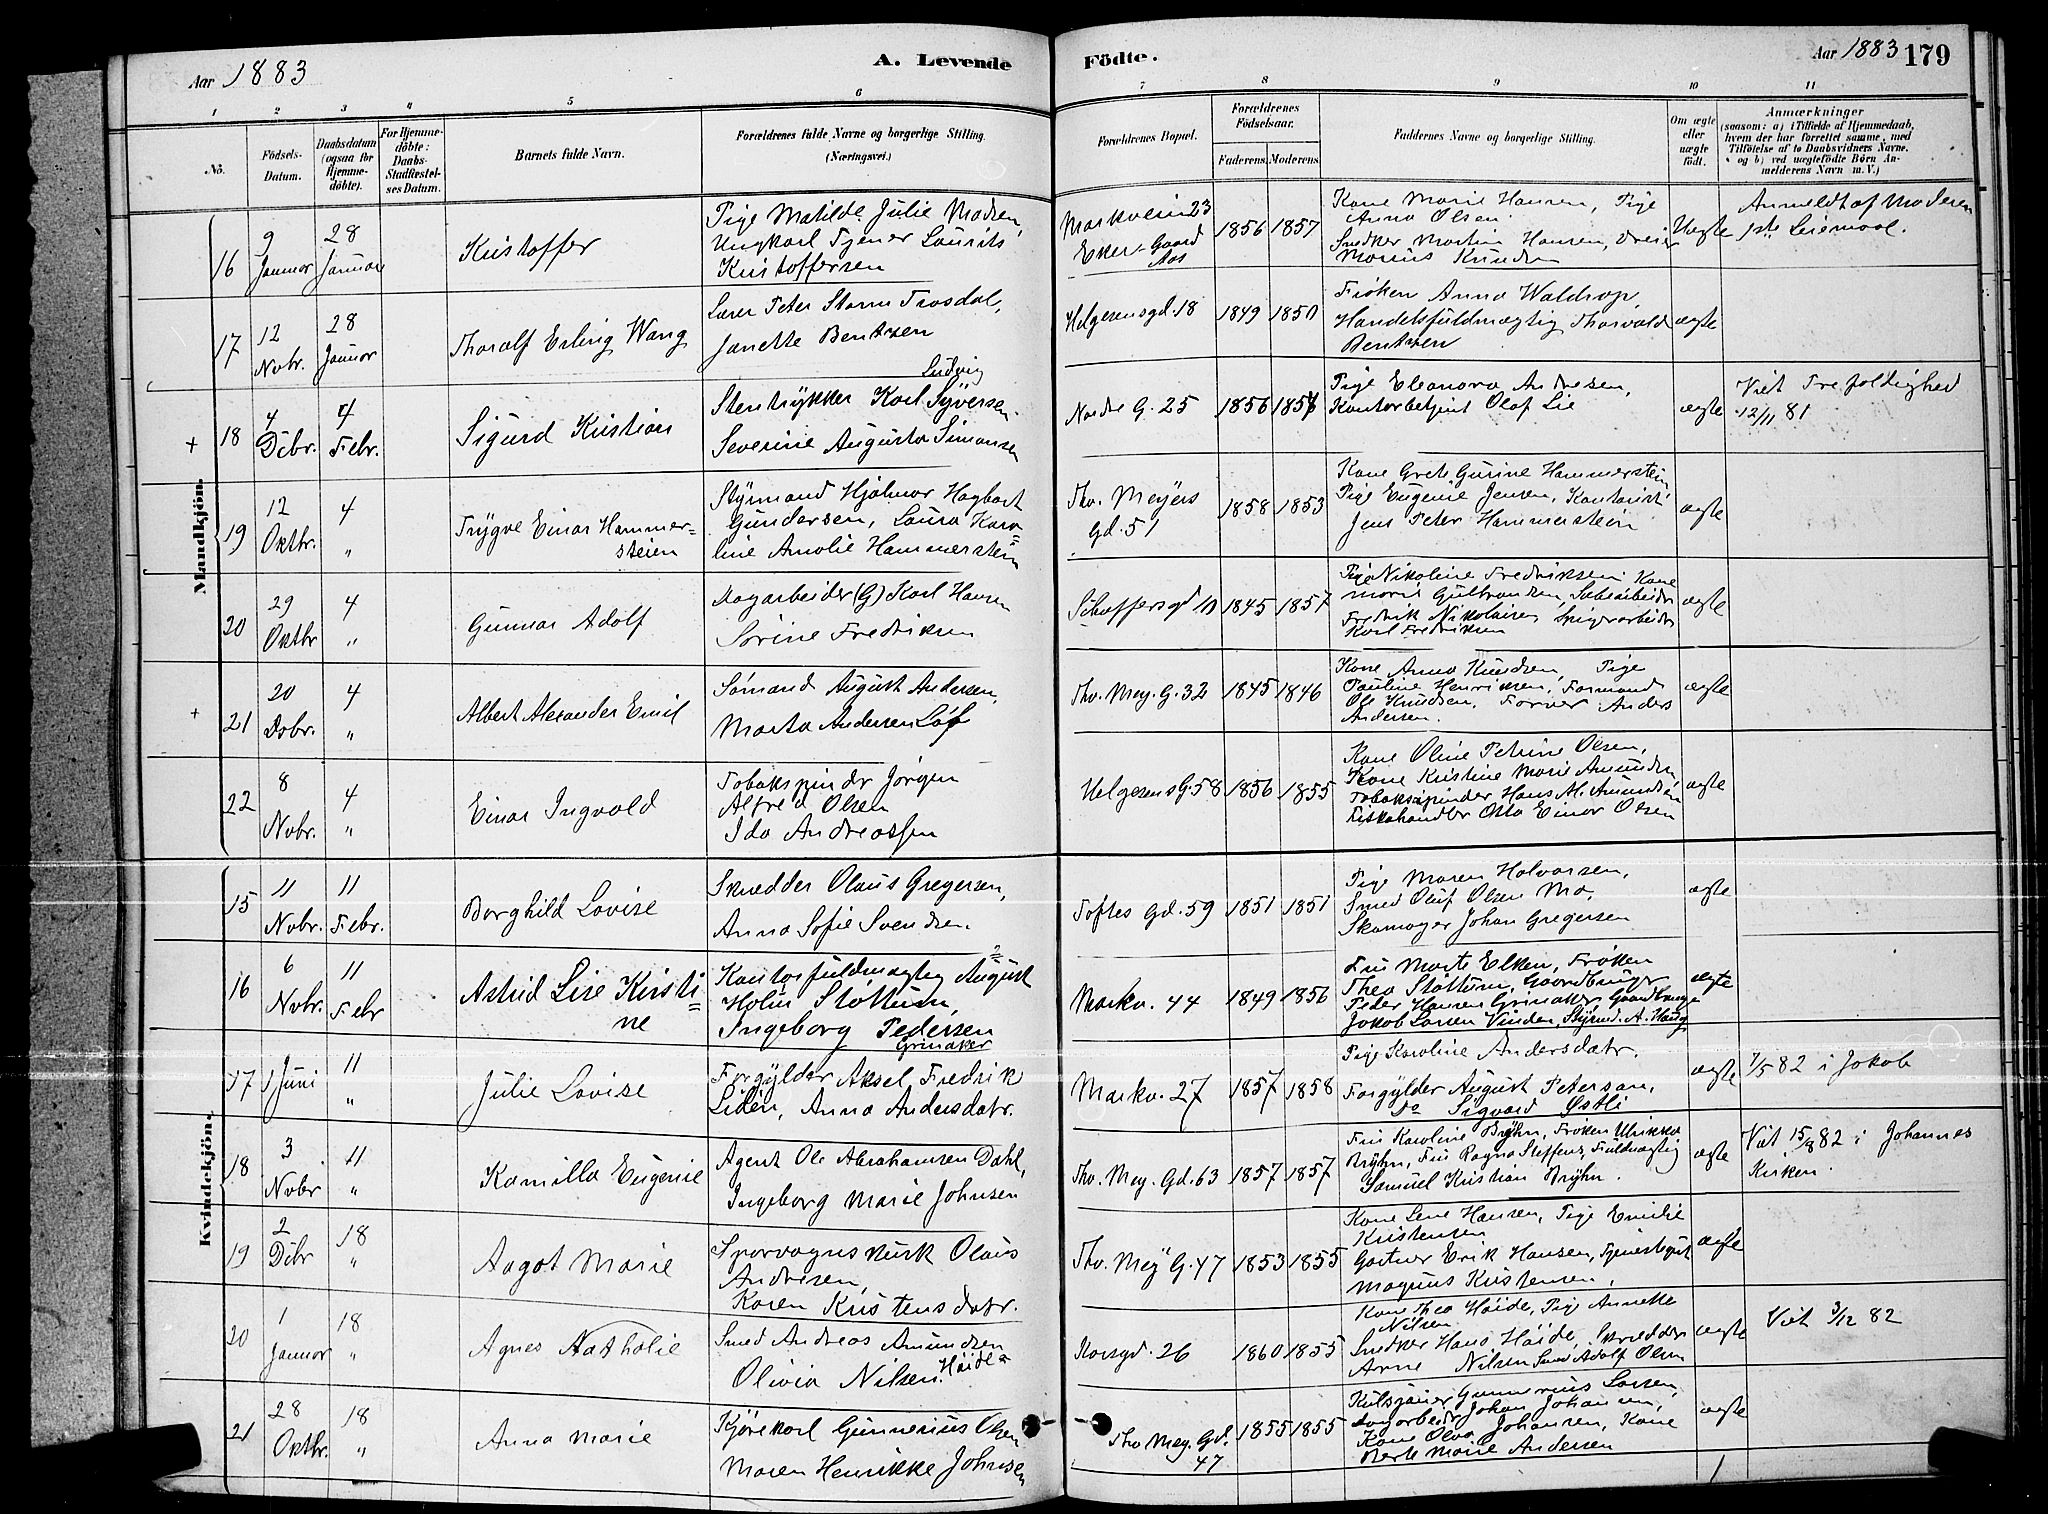 Aar 1883
A. Levende
Födte.
Aar 1883
179
1 2 3 4 5 6 7 8 9 10 11
No.
Födsels-Datum.
Daabsdatum (ogsaa for Hjemmedöbte).
For Hjemmedöbte: Daabs-Stadfæstelses Datum.
Barnets fulde Navn.
Forældrenes fulde Navne og borgerlige Stilling. (Næringsvei.)
Forældrenes Bopæl.
Forældrenes Födselsaar.
Faderens. Moderens.
Faddernes Navne og borgerlige Stilling.
Om ægte eller uægte födt.
Anmærkninger
(saasom: a) i Tilfælde af Hjemmedaab, hvem der har forrettet samme, med Tilföielse af to Daabsvidners Navne. og b) ved uægtefödte Börn Anmelderens Navn m.V.)
Mandkjön.
16
9 Januar
28 Januar
Kristoffer
Pige Matilde Julie Madsen,
Ungkarl Tjener Laurits
Kristoffersen
Markveien 23
Eker-Gaard
Aas
1856 1857
Kone Marie Hansen, Pige
Anna Olsen
Snedker Martin Hansen, Dreier
Marius Knudsen
Uægte
Anmeldt af Moderen
1ste Leiermaal.
17
12 Nvbr.
28 Januar
Thoralf Erling Wang
Lærer Peter Storm Trosdal,
Janette Bentzen
Helgesensgd. 18
1849 1850
Frøken Anna Waldrop,
Handelsfuldmægtig Thorvald
Bentzen
ægte
+ 18
4 Dcbr.
4 Febr.
Sigurd Kristian
Ludvig
Stentrykker Karl Syversen
Severine Augusta Simonsen
Nordre G. 25
1856 1856
Pige Eleonora Andresen,
Kontorbetjent Olaf Lie
ægte
Viet Trefoldighed
12/11 81
19
12 Oktbr.
4 "
Trygve Einar Hammer-
steien
Styrmand Hjalmar Hagbart
Gundersen, Laura Karo=
line Amalie Hammerstein
Thv. Meyers
gd. 51
1858 1853
Kone Grete Gurine Hammerstein,
Pige Eugenie Jensen, Kontorist
Jens Peter Hammerstein
ægte
20
29 Oktbr
4 "
Gunnar Adolf
Dagarbeider (G) Karl Hansen
Sørine Fredriksen
Schaffersgd 10
1845 1857
Pige Nikoline Fredriksen, Kone
Marie Gulbrandsen, Sæbearbeider
Fredrik Nikolaisen, Spigerarbeider
Karl Fredriksen
ægte
+ 21
20 Dcbr.
4 "
Albert Alexander Emil
Sømand August Andersen,
Marta Andersen Løf
Thv. Mey. G. 32
1845 1846
Kone Anna Knudsen, Pige
Pauline Henriksen, Formand
Ole Knudsen, Farver Anders
Andersen.
ægte
22
8 Nvbr.
4 "
Einar Ingvald
Tobakspinder Jørgen
Alfred Olsen
Ida Andreassen
Helgesens G. 58
1856 1855
Kone Oline Petrine Olsen,
Kone Kristine Marie Amundsen,
Tobakspinder Hans M. Amundsen
Fiskehandler Otto Einar Olsen
ægte
Kvindekjön.
15
11 Nvbr.
11 Febr.
Borghild Lovise
Skrædder Olaus Gregersen,
Anna Sofie Svendsen.
Toftes Gd. 59
1851 1851
Pige Maren Halvorsen,
Smed Oluf Olsen Mo,
Skomager Johan Gregersen
ægte
16
6 Nvbr.
11 Febr
Astrid Lise Kirsti=
ne
Kontorfuldmægtig August
Holm Støttum,
Ingeborg Pedersen
Grinaker
Markv. 44
1849 1856
Fru Marte Elken, Frøken
Thea Støttum, Gaardbruger
Peder Hansen Grinaker Gaardbruger
Jakob Larsen Vinden, Styrmd. A. Haug
ægte
17
1 Juni
11 "
Julie Lovise
Forgylder Aksel Fredrik
Liden, Anna Andersdatr.
Markv. 27
1857 1858
Pige Karoline Andersdatr.
Forgylder August Peterson,
do Sigvard Østli
ægte
7/5 82 i Jakob
18
3 Nvbr
11 "
Kamilla Eugenie
Agent Ole Abrahamsen Dahl,
Ingeborg Marie Johnsen
Thv. Mey. Gd. 63
1857 1857
Fru Karoline Bryhn, Frøken Ulrikka
Bryhn, Fru Ragna Steffens, Fuldmægtig
Samuel Kristian Bryhn.
ægte
Viet 15/8 82 i Johannes
Kirken.
19
2 Dcbr
18 "
Aagot Marie
Sporvognskusk Olaus
Andresen,
Karen Kristensdatr.
Thv. Mey G. 47
1853 1855
Kone Lene Hansen, Pige Emilie
Kristensen
Gartner Erik Hansen, Tjenestegut
Magnus Kristensen.
ægte
20
1 Januar
18 "
Agnes Nathalie
Smed Andreas Amundsen
Olivia Nilsen Høide
Korsgd. 26
1860 1855
Kone Thea Høide, Pige Annette
Nilsen
Snedker Hans Høide, Skrædder
Arne Nilsen Smed Adolf Olsen
ægte
Viet 3/12 82
21
28 Oktbr.
18 "
Anna Marie
Kjørekarl Gunnerius Olsen
Maren Henrikke Johnsen
Thv Mey. Gd.
47
1855 1855
Kulsjauer Gunnerius Larsen,
Dagarbeider Johan Johansen,
Kone Olva Johansen, Kone
Berte Marie Andersen
ægte